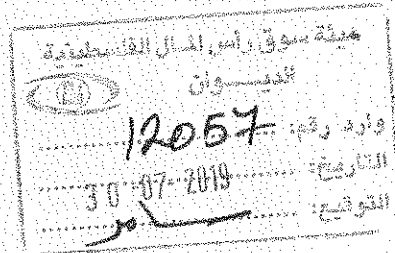 هيئة سوق رأس المال الفلسطينية
الديـــوان
وارد رقم: 12057
التاريخ: 30-07-2019
التوقيع: